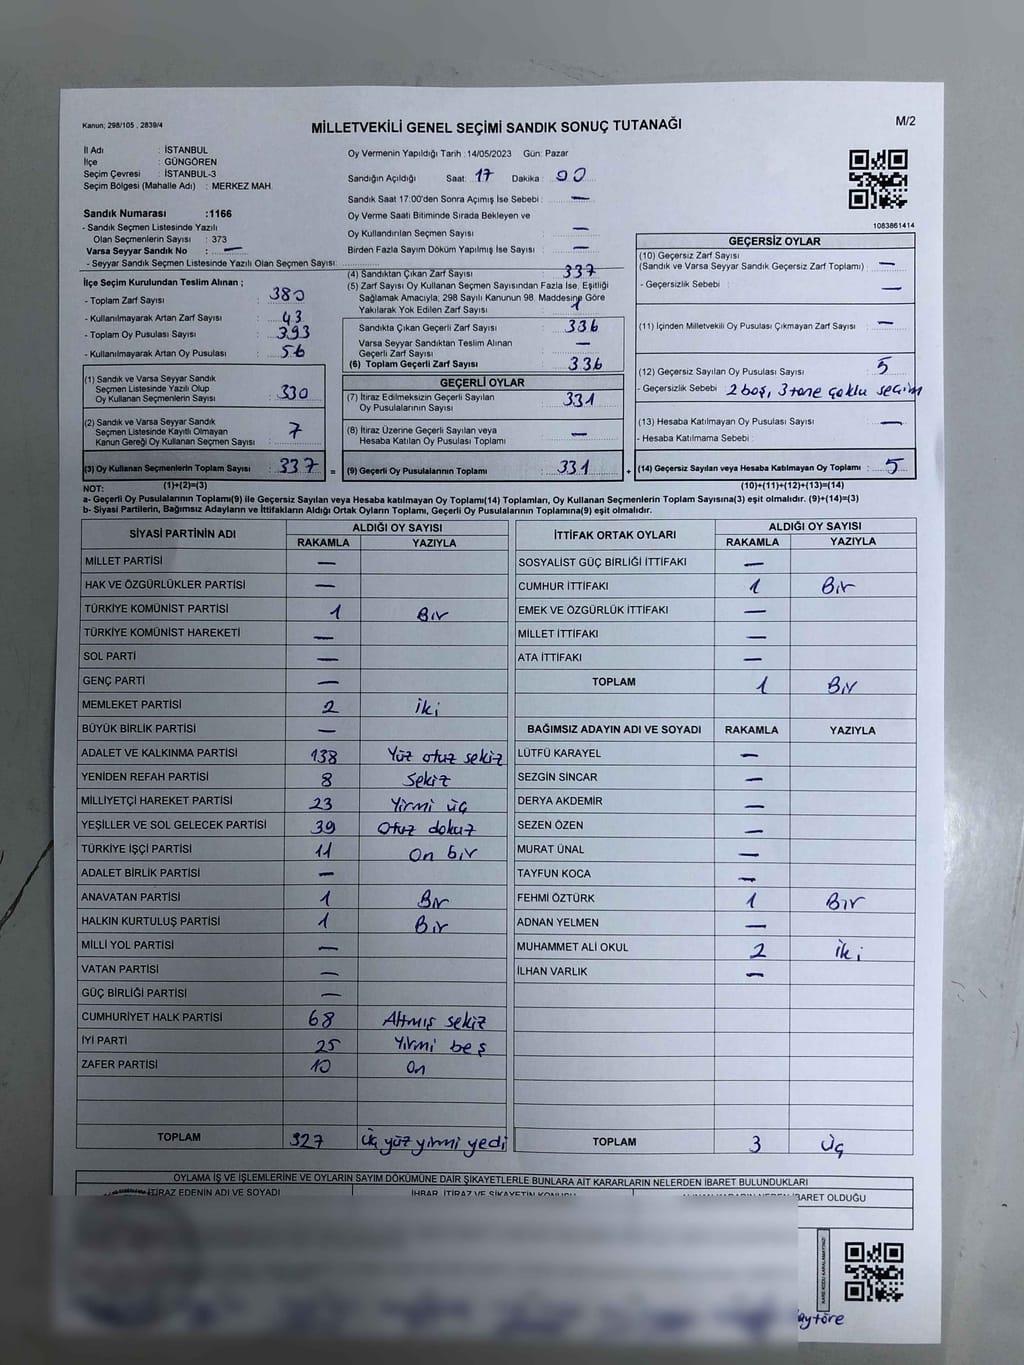 Kanun; 298/105 , 2839/4
MİLLETVEKİLİ GENEL SEÇİMİ SANDIK SONUÇ TUTANAĞI
M/2
İl Adı : İSTANBUL
İlçe : GÜNGÖREN
Seçim Çevresi : İSTANBUL-3
Seçim Bölgesi (Mahalle Adı) : MERKEZ MAH.
Sandık Numarası :1166
- Sandık Seçmen Listesinde Yazılı
Olan Seçmenlerin Sayısı : 373
Varsa Seyyar Sandık No : —
- Seyyar Sandık Seçmen Listesinde Yazılı Olan Seçmen Sayısı:
İlçe Seçim Kurulundan Teslim Alınan ;
- Toplam Zarf Sayısı : 380
- Kullanılmayarak Artan Zarf Sayısı : 43
- Toplam Oy Pusulası Sayısı : 393
- Kullanılmayarak Artan Oy Pusulası : 56
(1) Sandık ve Varsa Seyyar Sandık
Seçmen Listesinde Yazılı Olup
Oy Kullanan Seçmenlerin Sayısı : 330
(2) Sandık ve Varsa Seyyar Sandık
Seçmen Listesinde Kayıtlı Olmayan
Kanun Gereği Oy Kullanan Seçmen Sayısı : 7
(3) Oy Kullanan Seçmenlerin Toplam Sayısı : 337 =
Oy Vermenin Yapıldığı Tarih :14/05/2023 Gün: Pazar
Sandığın Açıldığı Saat: 17 Dakika : 00
Sandık Saat 17:00'den Sonra Açımış İse Sebebi : —
Oy Verme Saati Bitiminde Sırada Bekleyen ve
Oy Kullandırılan Seçmen Sayısı : —
Birden Fazla Sayım Döküm Yapılmış İse Sayısı : —
(4) Sandıktan Çıkan Zarf Sayısı : 337
(5) Zarf Sayısı Oy Kullanan Seçmen Sayısından Fazla İse, Eşitliği
Sağlamak Amacıyla, 298 Sayılı Kanunun 98. Maddesine Göre
Yakılarak Yok Edilen Zarf Sayısı : 1
Sandıkta Çıkan Geçerli Zarf Sayısı : 336
Varsa Seyyar Sandıktan Teslim Alınan
Geçerli Zarf Sayısı : —
(6) Toplam Geçerli Zarf Sayısı : 336
GEÇERLİ OYLAR
(7) İtiraz Edilmeksizin Geçerli Sayılan
Oy Pusulalarının Sayısı : 331
(8) İtiraz Üzerine Geçerli Sayılan veya
Hesaba Katılan Oy Pusulası Toplamı : —
(9) Geçerli Oy Pusulalarının Toplamı : 331 +
1083861414
GEÇERSİZ OYLAR
(10) Geçersiz Zarf Sayısı
(Sandık ve Varsa Seyyar Sandık Geçersiz Zarf Toplamı) : —
- Geçersizlik Sebebi : —
(11) İçinden Milletvekili Oy Pusulası Çıkmayan Zarf Sayısı : —
(12) Geçersiz Sayılan Oy Pusulası Sayısı : 5
- Geçersizlik Sebebi : 2 boş, 3 tane çoklu seçim
(13) Hesaba Katılmayan Oy Pusulası Sayısı : —
- Hesaba Katılmama Sebebi :
(14) Geçersiz Sayılan veya Hesaba Katılmayan Oy Toplamı : 5
NOT: (1)+(2)=(3) (10)+(11)+(12)+(13)=(14)
a- Geçerli Oy Pusulalarının Toplamı(9) ile Geçersiz Sayılan veya Hesaba katılmayan Oy Toplamı(14) Toplamları, Oy Kullanan Seçmenlerin Toplam Sayısına(3) eşit olmalıdır. (9)+(14)=(3)
b- Siyasi Partilerin, Bağımsız Adayların ve İttifakların Aldığı Ortak Oyların Toplamı, Geçerli Oy Pusulalarının Toplamına(9) eşit olmalıdır.
SİYASİ PARTİNİN ADI ALDIĞI OY SAYISI
RAKAMLA YAZIYLA
MİLLET PARTİSİ —
HAK VE ÖZGÜRLÜKLER PARTİSİ —
TÜRKİYE KOMÜNİST PARTİSİ 1 Bir
TÜRKİYE KOMÜNİST HAREKETİ —
SOL PARTİ —
GENÇ PARTİ —
MEMLEKET PARTİSİ 2 iki
BÜYÜK BİRLİK PARTİSİ —
ADALET VE KALKINMA PARTİSİ 138 Yüz otuz sekiz
YENİDEN REFAH PARTİSİ 8 Sekiz
MİLLİYETÇİ HAREKET PARTİSİ 23 Yirmi üç
YEŞİLLER VE SOL GELECEK PARTİSİ 39 Otuz dokuz
TÜRKİYE İŞÇİ PARTİSİ 11 On bir
ADALET BİRLİK PARTİSİ —
ANAVATAN PARTİSİ 1 Bir
HALKIN KURTULUŞ PARTİSİ 1 Bir
MİLLİ YOL PARTİSİ —
VATAN PARTİSİ —
GÜÇ BİRLİĞİ PARTİSİ —
CUMHURİYET HALK PARTİSİ 68 Altmış sekiz
İYİ PARTİ 25 Yirmi beş
ZAFER PARTİSİ 10 On
TOPLAM 327 Üç yüz yirmi yedi
İTTİFAK ORTAK OYLARI ALDIĞI OY SAYISI
RAKAMLA YAZIYLA
SOSYALİST GÜÇ BİRLİĞİ İTTİFAKI —
CUMHUR İTTİFAKI 1 Bir
EMEK VE ÖZGÜRLÜK İTTİFAKI —
MİLLET İTTİFAKI —
ATA İTTİFAKI —
TOPLAM 1 Bir
BAĞIMSIZ ADAYIN ADI VE SOYADI RAKAMLA YAZIYLA
LÜTFÜ KARAYEL —
SEZGİN SİNCAR —
DERYA AKDEMİR —
SEZEN ÖZEN —
MURAT ÜNAL —
TAYFUN KOCA —
FEHMİ ÖZTÜRK 1 Bir
ADNAN YELMEN —
MUHAMMET ALİ OKUL 2 iki
İLHAN VARLIK —
TOPLAM 3 Üç
OYLAMA İŞ VE İŞLEMLERİNE VE OYLARIN SAYIM DÖKÜMÜNE DAİR ŞİKAYETLERLE BUNLARA AİT KARARLARIN NELERDEN İBARET BULUNDUKLARI
İTİRAZ EDENİN ADI VE SOYADI İHBAR, İTİRAZ VE ŞİKAYETİN KONUSU İBARET OLDUĞU